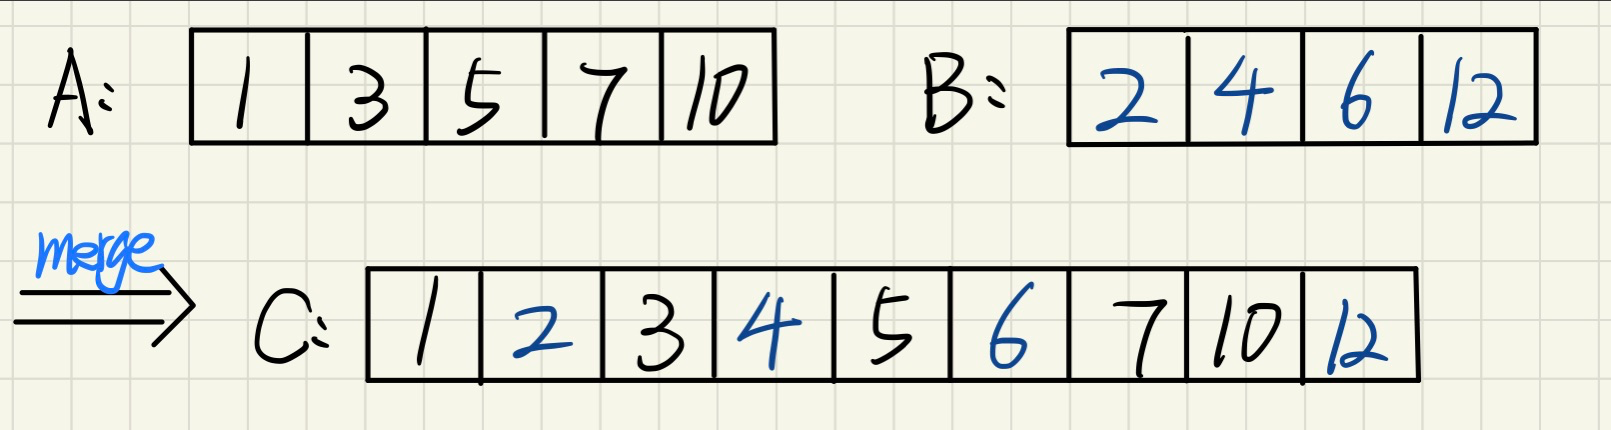 A: 1 3 5 7 10 B: 2 4 6 12
merge C: 1 2 3 4 5 6 7 10 12